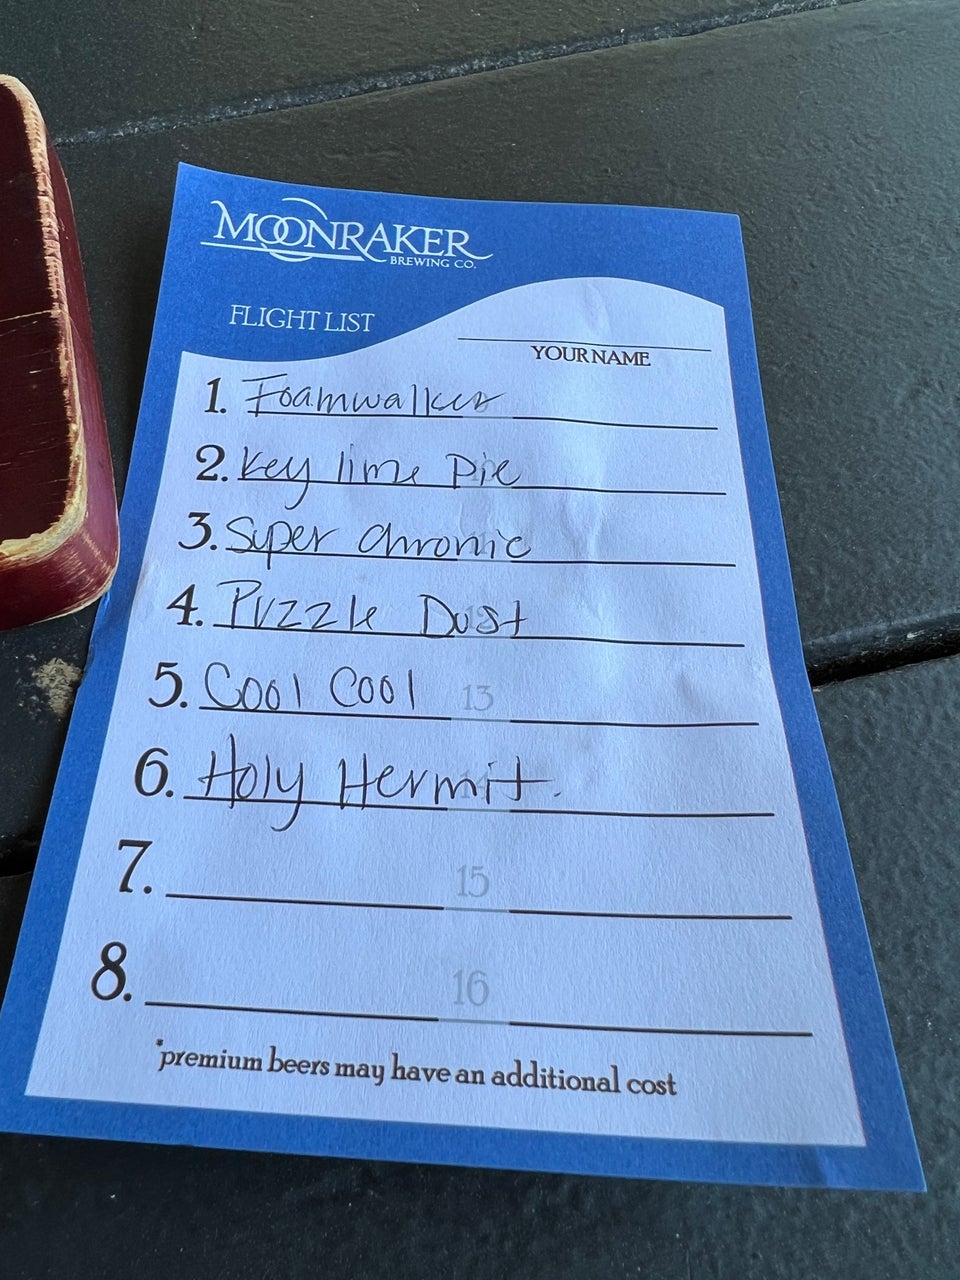 MOONRAKER
BREWING CO.
FLIGHT LIST
YOUR NAME
1. Foamwalker
2. Key lime pie
3. Super Chronic
4. Puzzle Dust
5. Cool Cool 13
6. Holy Hermit.
7. 15
8. 16
*premium beers may have an additional cost